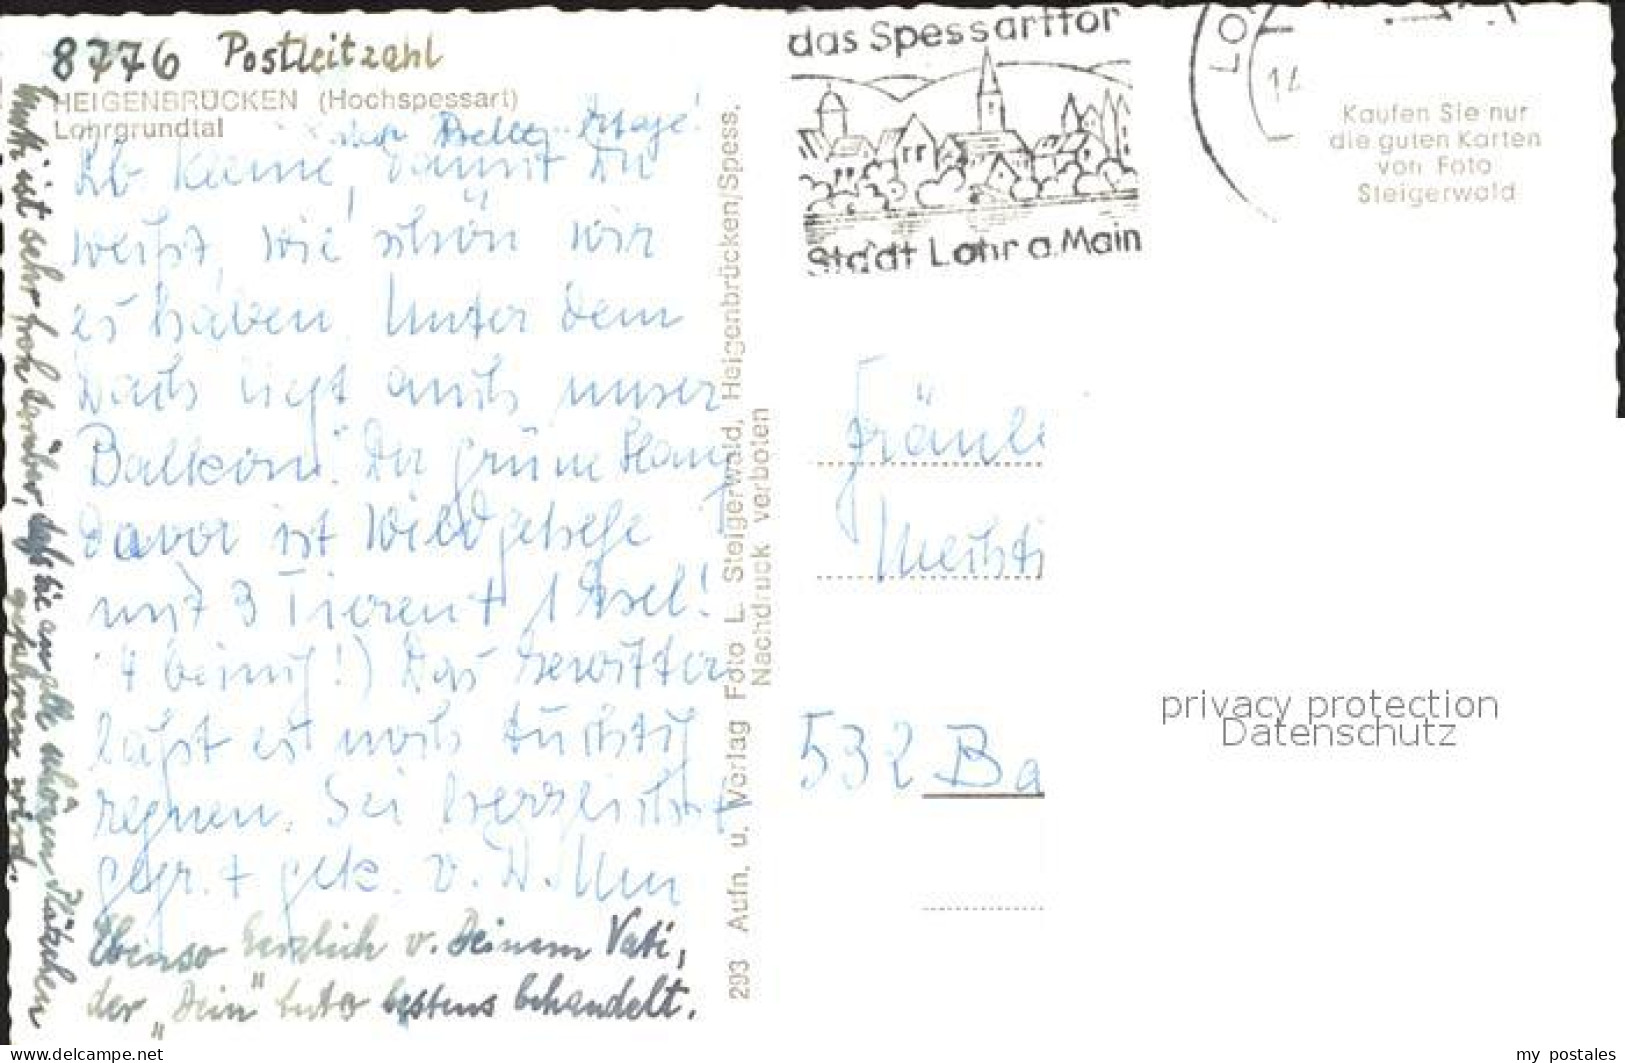 8776 Postleitzahl
HEIGENBRÜCKEN (Hochspessart)
Lohrgrundtal
der Etage!
Lb. Kleine, damit Du
weißt, wie schön wir
es haben. Unter dem
Dach liegt auch unser
Balkon. Der grüne Hang
davor ist Wildgehege
mit 3 Tieren + 1 Esel!
4 beinig!) Das Gewitter
läßt es noch tüchtig
regnen. Sei herzlichst
gegr. + gek. v. D. Mu
Ebenso herzlich v. Deinem Vati,
der "Dein" Auto bestens behandelt.
Mutti ist sehr froh darüber, daß sie an alle schönen Plätzchen
gefahren wird.
293 Aufn. u. Verlag Foto L. Steigerwald, Heigenbrücken/Spess.
Nachdruck verboten
das Spessarttor
Stadt Lohr a. Main
LO
14
Kaufen Sie nur
die guten Karten
von Foto
Steigerwald
Fräule
Mechti
532 Ba
privacy protection
Datenschutz
https://www.delcampe.net
my_postales